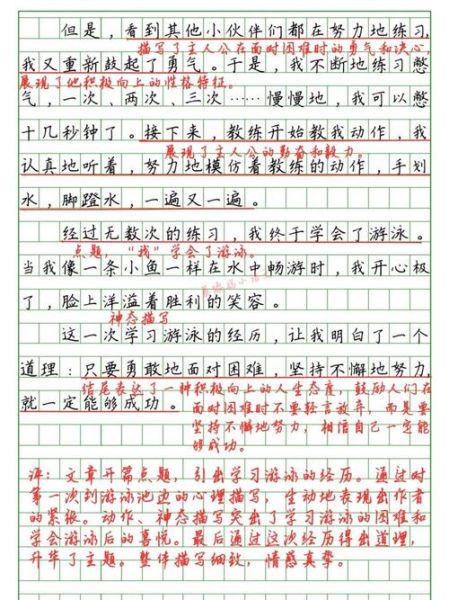 但是，看到其他小伙伴们都在努力地练习，
描写了主人公在面对困难时的勇气和决心，
我又重新鼓起了勇气。于是，我不断地练习憋
展现了他积极向上的性格特征。
气，一次、两次、三次……慢慢地，我可以憋
十几秒钟了。接下来，教练开始教我动作，我
展现了主人公的勤奋和毅力。
认真地听着，努力地模仿着教练的动作，手划
水，脚蹬水，一遍又一遍。
经过无数次的练习，我终于学会了游泳。
点题，“我”学会了游泳。
当我像一条小鱼一样在水中畅游时，我开心极
了，脸上洋溢着胜利的笑容。
神态描写
这一次学习游泳的经历，让我明白了一个
道理：只要勇敢地面对困难，坚持不懈地努力，
结尾表达了一种积极向上的人生态度，鼓励人们在
就一定能够成功。
面对困难时不要轻言放弃，而是要
坚持不懈地努力，相信自己一定能
够成功。
评：文章开篇点题，引出学习游泳的经历。通过对
第一次到游泳池边的心理描写，生动地表现出作者
的紧张。动作、神态描写突出了学习游泳的困难和
学会游泳后的喜悦。最后通过这次经历得出道理，
升华了主题。整体描写细致，情感真挚。